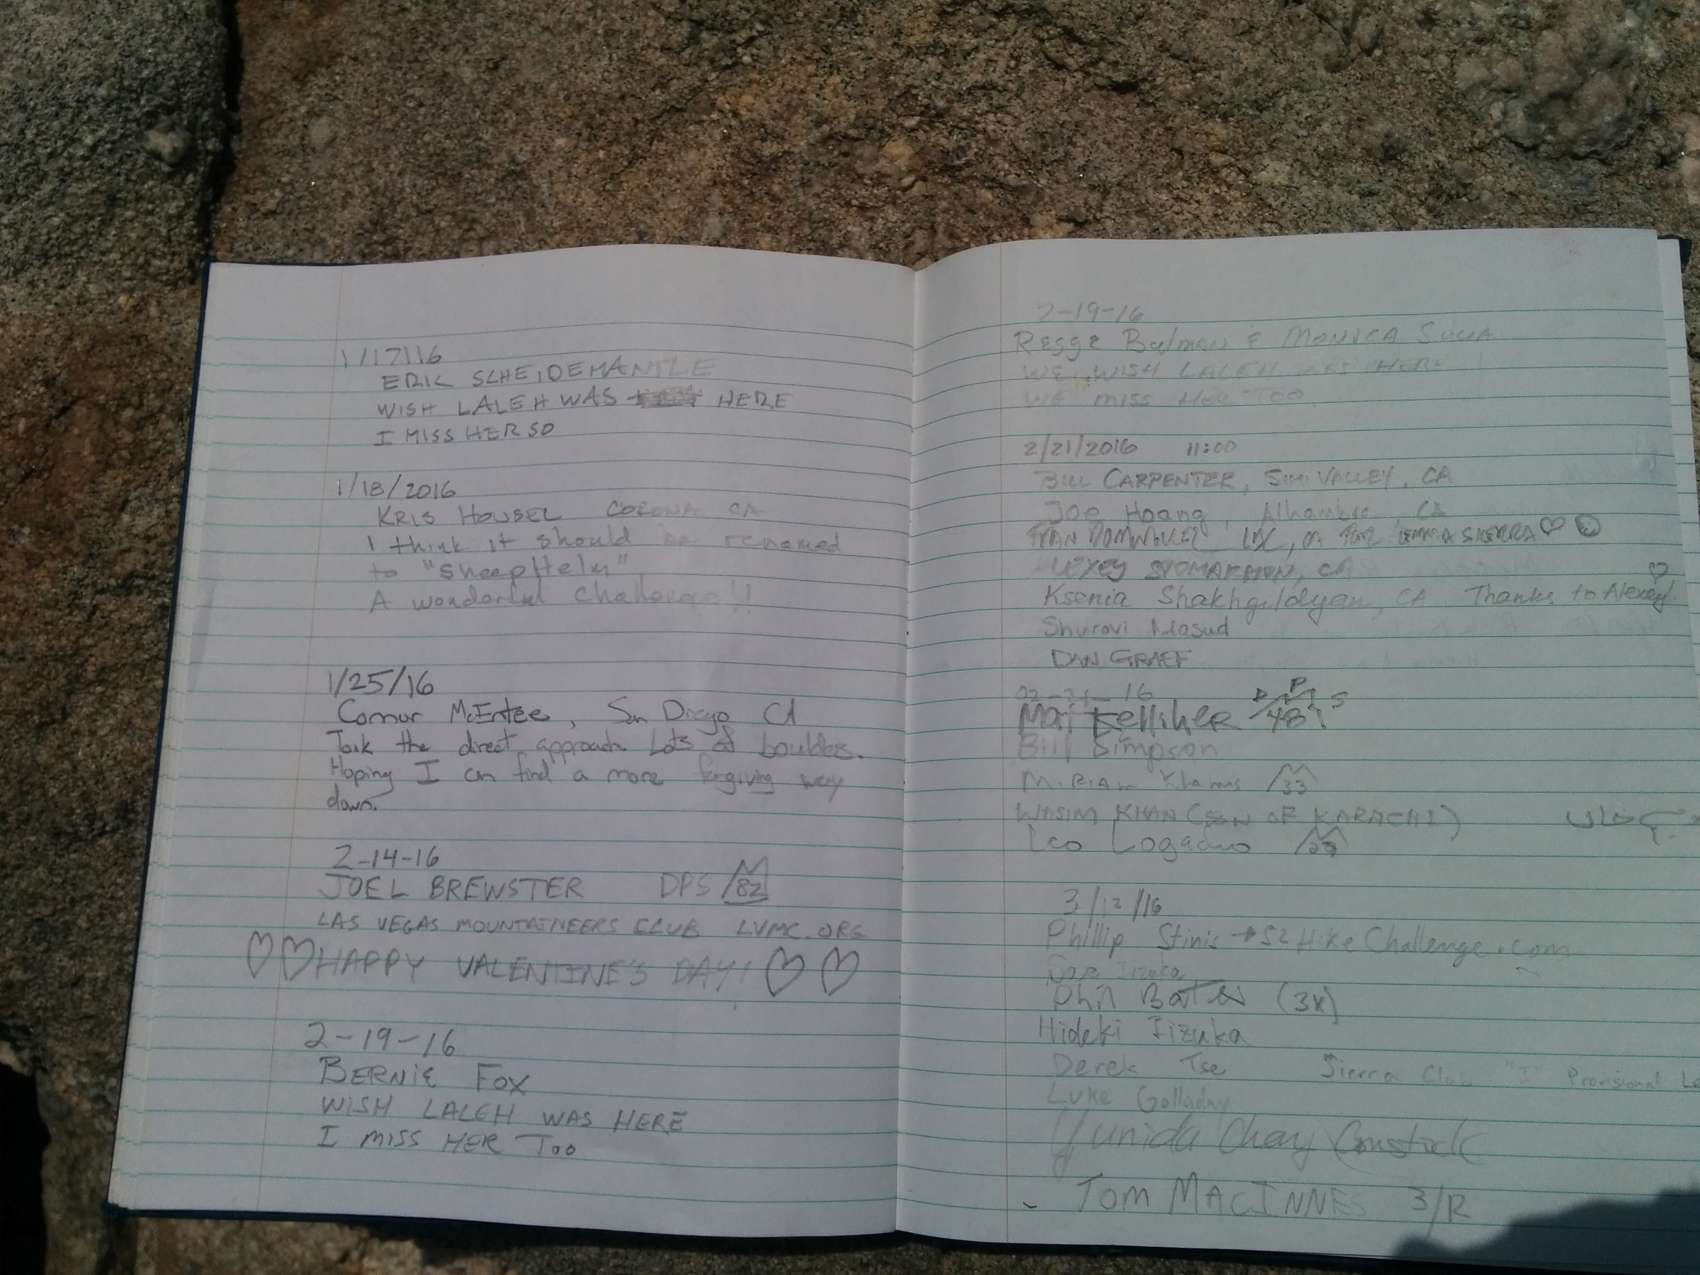 1/17/16
ERIC SCHEIDEMANTLE
WISH LALEH WAS HERE
I MISS HER SO
1/18/2016
KRIS HOUSEL CORONA CA
I think it should be renamed
to "SheepHelm"
A wonderful challenge!!
1/25/16
Connor McEntee, San Diego CA
Took the direct approach. Lots of boulders.
Hoping I can find a more forgiving way
down.
2-14-16
JOEL BREWSTER DPS 82
LAS VEGAS MOUNTAINEERS CLUB LVMC.ORG
HAPPY VALENTINE'S DAY!
2-19-16
BERNIE FOX
WISH LALEH WAS HERE
I MISS HER TOO
2-19-16
& MONICA
WE WISH LALEH WAS HERE
WE MISS HER TOO
2/21/2016 11:00
BILL CARPENTER, SIMI VALLEY, CA
Joe Hoang, Alhambra, CA
SIERRA
CA
Ksenia Shakhgildyan, CA. Thanks to Alexey!
Shurovi Masud
DAN GRAEF
16
Kelliher DPS 48
Bill Simpson
33
WASIM KHAN (SON OF KARACHI) خان
Leo
3/12/16
Phillip Stinis → 52HikeChallenge.com
Iizuka
Phil Bates (3x)
Hideki Iizuka
Derek Tse Sierra Club "I" Provisional
Luke Golladay
Yunida Chay Comstock
TOM MACINNES 3/12